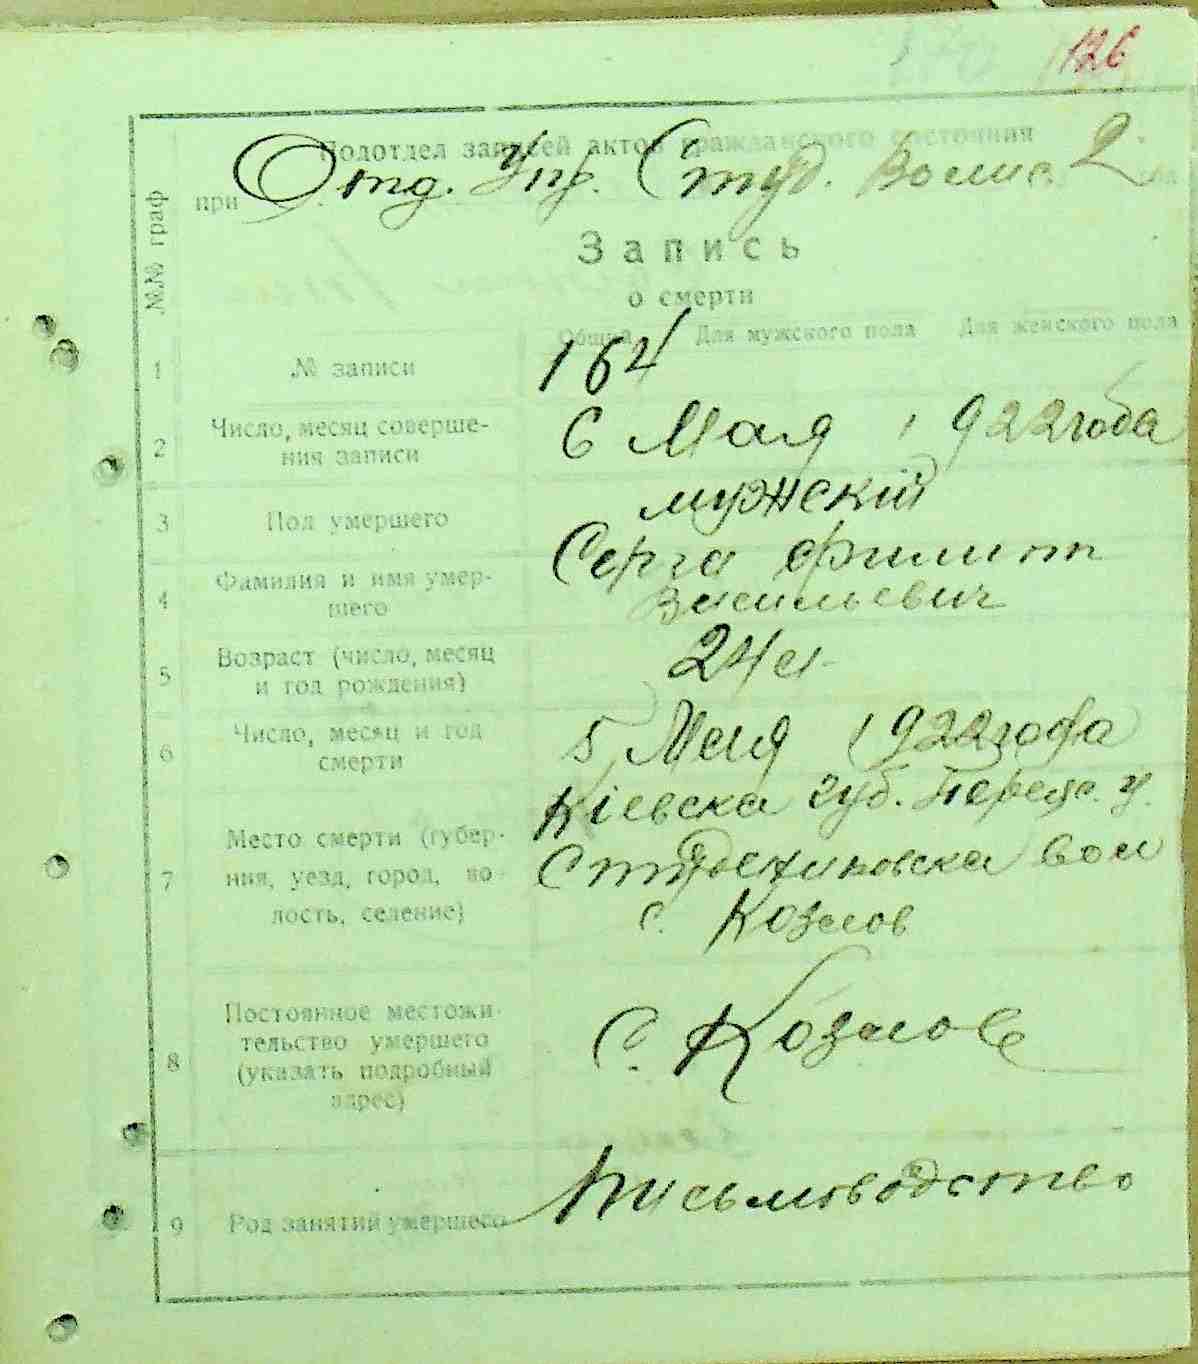 126
Подотдел записей актов гражданского состояния
при Отд. Упр. Студ. Волис. 2
№№ граф
Запись
о смерти
Общий Для мужского пола Для женского пола
1 № записи 164
2 Число, месяц соверше-
ния записи
6 Мая 1922 года
3 Пол умершего мужскій
4 Фамилия и имя умер-
шего
Серга Филипп
Васильевич
5 Возраст (число, месяц
и год рождения)
24 л.
6 Число, месяц и год
смерти
5 Мая 1922 года
7 Место смерти (губер-
ния, уезд, город, во-
лость, селение)
Кіевска губ. Переяс. у.
Студениковска вол
с. Козлов
8 Постоянное местожи-
тельство умершего
(указать подробный
адрес)
с. Козлов
9 Род занятий умершего Письмоводство